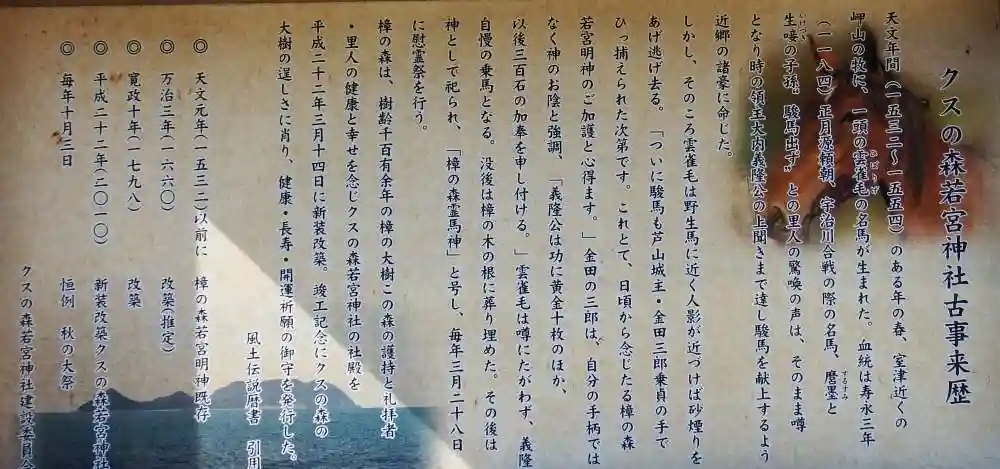 クスの森若宮神社古事来歴
天文年間（一五三二〜一五五四）のある年の春、室津近くの
岬山の牧に、一頭の雲雀毛の名馬が生まれた。血統は寿永三年
ひばりげ
（一一八四）正月源頼朝、宇治川合戦の際の名馬、磨墨と
するすみ
生唼の子孫。〝駿馬出ず〟との里人の驚喚の声は、そのまま噂
いけづき
となり時の領主大内義隆公の上聞きまで達し駿馬を献上するよう
近郷の諸豪に命じた。
しかし、そのころ雲雀毛は野生馬に近く人影が近づけば砂煙りを
あげ逃げ去る。「ついに駿馬も芦山城主・金田三郎乗貞の手で
ひっ捕えられた次第です。これとて、日頃から念じたる樟の森
若宮明神のご加護と心得ます。」金田の三郎は、自分の手柄では
なく神のお陰と強調、「義隆公は功に黄金十枚のほか、
以後三百石の加奉を申し付ける。」雲雀毛は噂にたがわず、義隆
自慢の乗馬となる。没後は樟の木の根に葬り埋めた。その後は
神として祀られ、「樟の森霊馬神」と号し、毎年三月二十八日
に慰霊祭を行う。
樟の森は、樹齢千百有余年の樟の大樹この森の護持と礼拝者
・里人の健康と幸せを念じクスの森若宮神社の社殿を
平成二十二年三月十四日に新装改築。竣工記念にクスの森の
大樹の逞しさに肖り、健康・長寿・開運祈願の御守を発行した。
風土伝説暦書 引用
◎ 天文元年（一五三二）以前に 樟の森若宮明神既存
◎ 万治三年（一六六〇） 改築（推定）
◎ 寛政十年（一七九八） 改築
◎ 平成二十二年（二〇一〇） 新装改築クスの森若宮神社
◎ 毎年十月三日 恒例 秋の大祭
クスの森若宮神社建設委員会